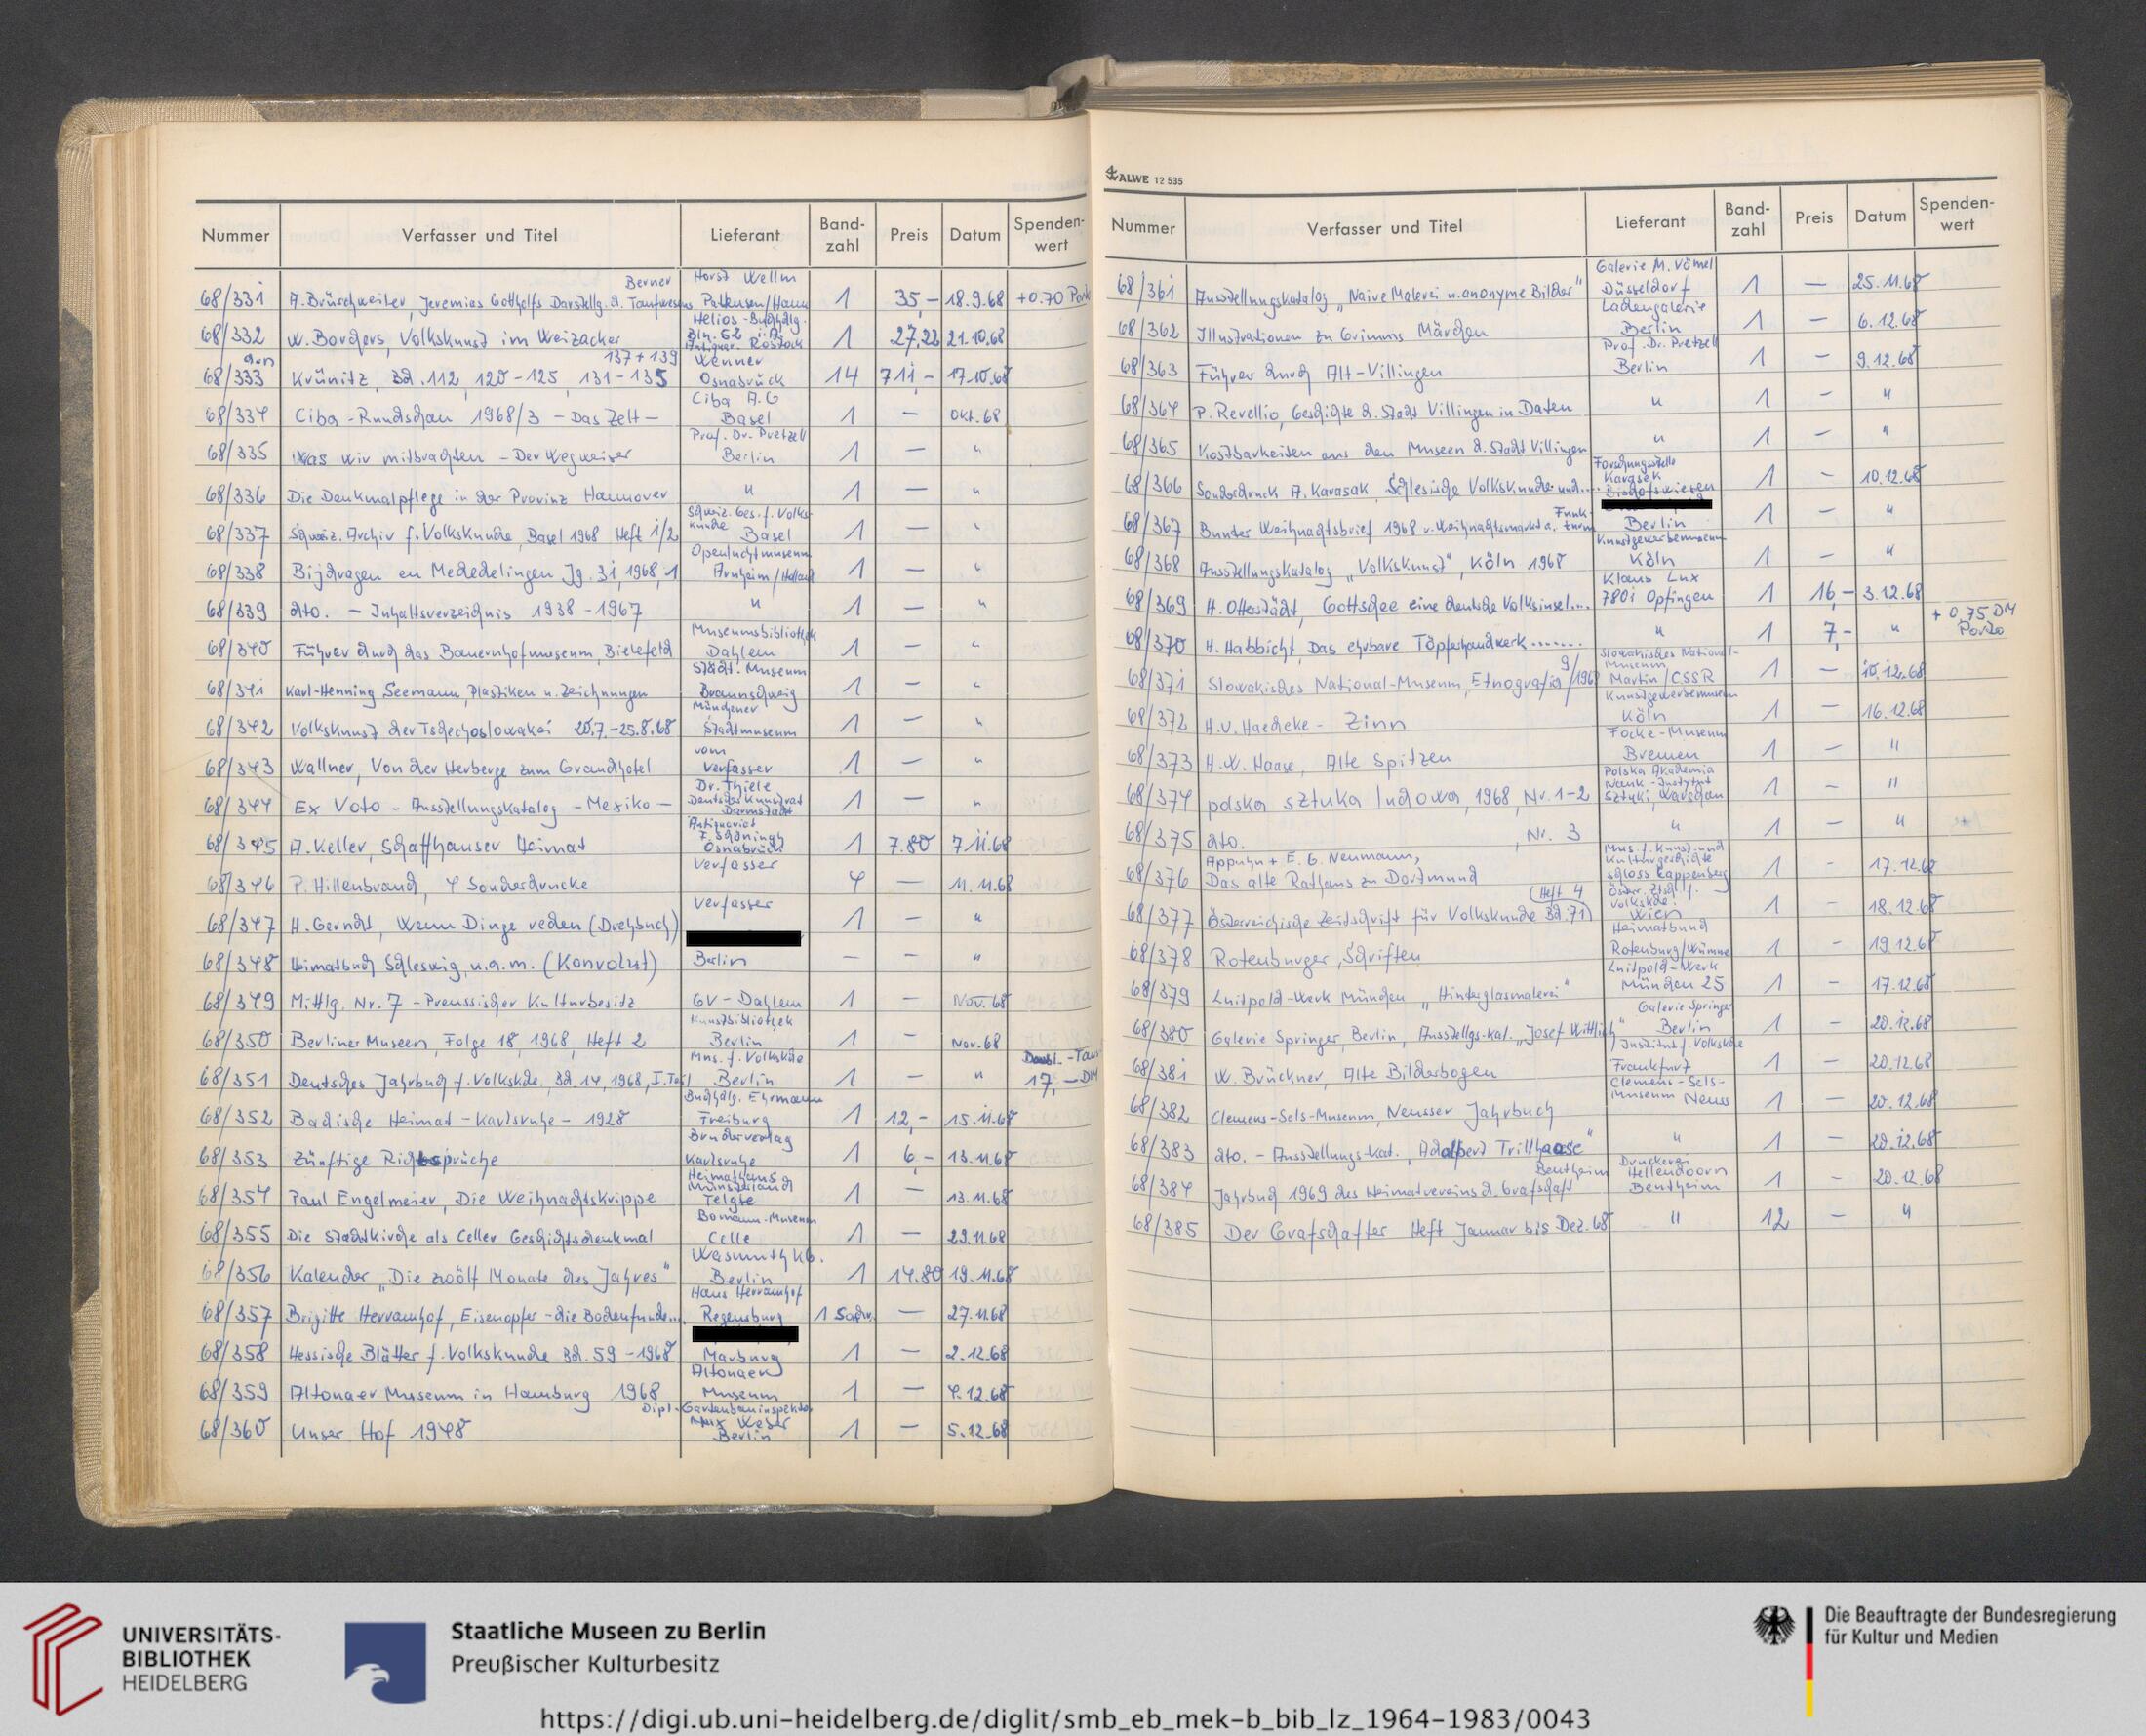 Nummer Verfasser und Titel Lieferant Band-zahl Preis Datum Spenden-wert
68/331 A. Brüschweiler, Jeremias Gotthelfs Darstellg. d. Berner Taufwesens Horst Wellm Pattensen/Hann 1 35,- 18.9.68 +0.70 Porto
68/332 W. Borchers, Volkskunst im Weizacker Helios-Buchhdlg. Bln. 62 Antiquar. Rostock 1 27,22 21.10.68
68/333 Krünitz, Bd. 112, 120-125, 131-135 137+139 Wenner Osnabrück 14 711,- 17.10.68
68/334 Ciba-Rundschau 1968/3 - Das Zelt - Ciba A.G Basel 1 — Okt. 68
68/335 Was wir mitbrachten - Der Wegweiser Prof. Dr. Pretzell Berlin 1 — "
68/336 Die Denkmalpflege in der Provinz Hannover " 1 — "
68/337 Schweiz. Archiv f. Volkskunde, Basel 1968 Heft 1/2 Schweiz. Ges. f. Volks-kunde Basel 1 — "
68/338 Bijdragen en Mededelingen Jg. 31, 1968, 1 Openluchtmuseum Arnheim/Holland 1 — "
68/339 dto. - Inhaltsverzeichnis 1938-1967 " 1 — "
68/340 Führer durch das Bauernhofmuseum, Bielefeld Museumsbibliothek Dahlem 1 — "
68/341 Karl-Henning Seemann, Plastiken u. Zeichnungen Städt. Museum Braunschweig 1 — "
68/342 Volkskunst der Tschechoslowakei 20.7.-25.8.68 Münchener Stadtmuseum 1 — "
68/343 Wallner, Von der Herberge zum Grandhotel vom Verfasser 1 — "
68/344 Ex Voto - Ausstellungskatalog - Mexiko - Dr. Thiele Deutscher Kunstrat Darmstadt 1 — "
68/345 A. Keller, Schaffhauser Heimat Antiquariat F. Schöningh Osnabrück 1 7.80 7.11.68
68/346 P. Hillenbrand, 4 Sonderdrucke Verfasser 4 — 11.11.68
68/347 H. Gerndt, Wenn Dinge reden (Drehbuch) Verfasser 1 — "
68/348 Heimatbuch Schleswig, u.a.m. (Konvolut) Berlin — — "
68/349 Mittlg. Nr. 7 - Preussischer Kulturbesitz GV-Dahlem 1 — Nov. 68
68/350 Berliner Museen, Folge 18, 1968, Heft 2 Kunstbibliothek Berlin 1 — Nov. 68
68/351 Deutsches Jahrbuch f. Volkskde, Bd. 14, 1968, I. Teil Mus. f. Volkskde Berlin 1 — " 17,- DM
68/352 Badische Heimat - Karlsruhe - 1928 Buchhdlg. Ehrmann Freiburg 1 12,- 15.11.68
68/353 Zünftige Richtsprüche Bruderverlag Karlsruhe 1 6,- 13.11.68
68/354 Paul Engelmeier, Die Weihnachtskrippe Heimathaus Münsterland Telgte 1 — 13.11.68
68/355 Die Stadtkirche als Celler Geschichtsdenkmal Bomann-Museum Celle 1 — 29.11.68
68/356 Kalender „Die zwölf Monate des Jahres" Wasmuth KG. Berlin 1 14.80 19.11.68
68/357 Brigitte Herramhof, Eisenopfer - die Bodenfunde... Hans Herramhof Regensburg 1 Sopdr. — 27.11.68
68/358 Hessische Blätter f. Volkskunde Bd. 59 - 1968 Marburg 1 — 2.12.68
68/359 Altonaer Museum in Hamburg 1968 Altonaer Museum 1 — 4.12.68
68/360 Unser Hof 1948 Dipl.-Gartenbauinspektor Max Weber Berlin 1 — 5.12.68
ALWE 12 535
Nummer Verfasser und Titel Lieferant Band-zahl Preis Datum Spenden-wert
68/361 Ausstellungskatalog „Naive Malerei u. anonyme Bilder" Galerie M. Vömel Düsseldorf 1 — 25.11.68
68/362 Illustrationen zu Grimms Märchen Ladengalerie Berlin 1 — 6.12.68
68/363 Führer durch Alt-Villingen Prof. Dr. Pretzell Berlin 1 — 9.12.68
68/364 P. Revellio, Geschichte d. Stadt Villingen in Daten " 1 — "
68/365 Kostbarkeiten aus den Museen d. Stadt Villingen " 1 — "
68/366 Sonderdruck A. Karasek, Schlesische Volkskunde und.... Forschungsstelle Karasek Bischofswiesen 1 — 10.12.68
68/367 Bunter Weihnachtsbrief 1968 v. Weihnachtsmarkt a. Funkturm Berlin 1 — "
68/368 Ausstellungskatalog „Volkskunst", Köln 1968 Kunstgewerbemuseum Köln 1 — "
68/369 H. Otterstädt, Gottschee eine deutsche Volksinsel... Klaus Lux 7801 Opfingen 1 16,- 3.12.68
68/370 H. Habbicht, Das ehrbare Töpferhandwerk....... " 1 7,- " + 0,75 DM Porto
68/371 Slowakisches National-Museum, Etnografia 9/1968 Slowakisches National-Museum Martin/CSSR 1 — 10.12.68
68/372 H.U. Haedeke - Zinn Kunstgewerbemuseum Köln 1 — 16.12.68
68/373 H.W. Haase, Alte Spitzen Focke-Museum Bremen 1 — "
68/374 polska sztuka ludowa, 1968, Nr. 1-2 Polska Akademia Nauk-Instytut Sztuki, Warschau 1 — "
68/375 dto. , Nr. 3 " 1 — "
68/376 Appuhn + E.G. Neumann, Das alte Rathaus zu Dortmund Mus. f. Kunst und Kulturgeschichte Schloss Cappenberg 1 - 17.12.68
68/377 Österreichische Zeitschrift für Volkskunde Bd. 71 (Heft 4) Österr. Ztschr. f. Volkskde. Wien 1 - 18.12.68
68/378 Rotenburger Schriften Heimatbund Rotenburg/Wümme 1 - 19.12.68
68/379 Luitpold-Werk München „Hinterglasmalerei" Luitpold-Werk München 25 1 - 17.12.68
68/380 Galerie Springer, Berlin, Ausstellgs-Kat. „Josef Wittlich" Galerie Springer Berlin 1 - 20.12.68
68/381 W. Brückner, Alte Bilderbogen Institut f. Volkskde Frankfurt 1 — 20.12.68
68/382 Clemens-Sels-Museum, Neusser Jahrbuch Clemens-Sels-Museum Neuss 1 — 20.12.68
68/383 dto. - Ausstellungs-Kat., Adalbert Trillhaase" " 1 — 20.12.68
68/384 Jahrbuch 1969 des Heimatvereins d. Grafschaft Bentheim Druckerei Hellendoorn Bentheim 1 - 20.12.68
68/385 Der Grafschafter Heft Januar bis Dez. 68 " 12 — "
UNIVERSITÄTS-
BIBLIOTHEK
HEIDELBERG
Staatliche Museen zu Berlin
Preußischer Kulturbesitz
Die Beauftragte der Bundesregierung
für Kultur und Medien
https://digi.ub.uni-heidelberg.de/diglit/smb_eb_mek-b_bib_lz_1964-1983/0043